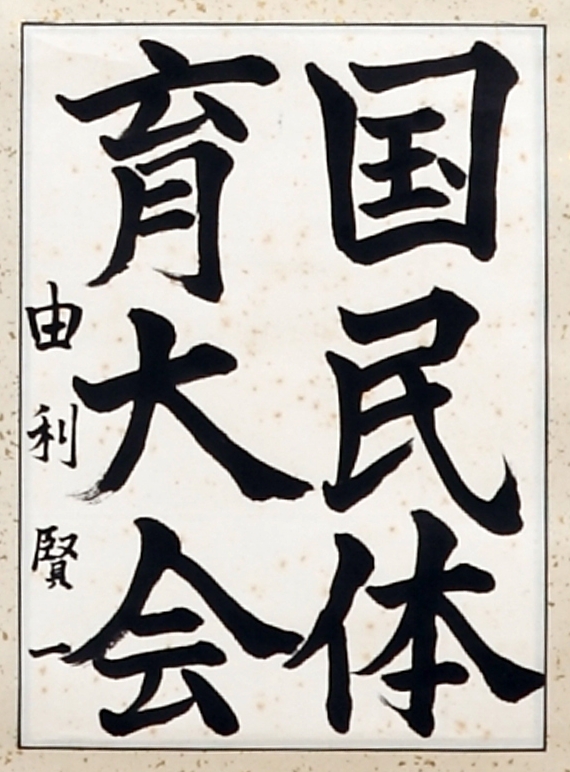 国民体
育大会
由利賢一